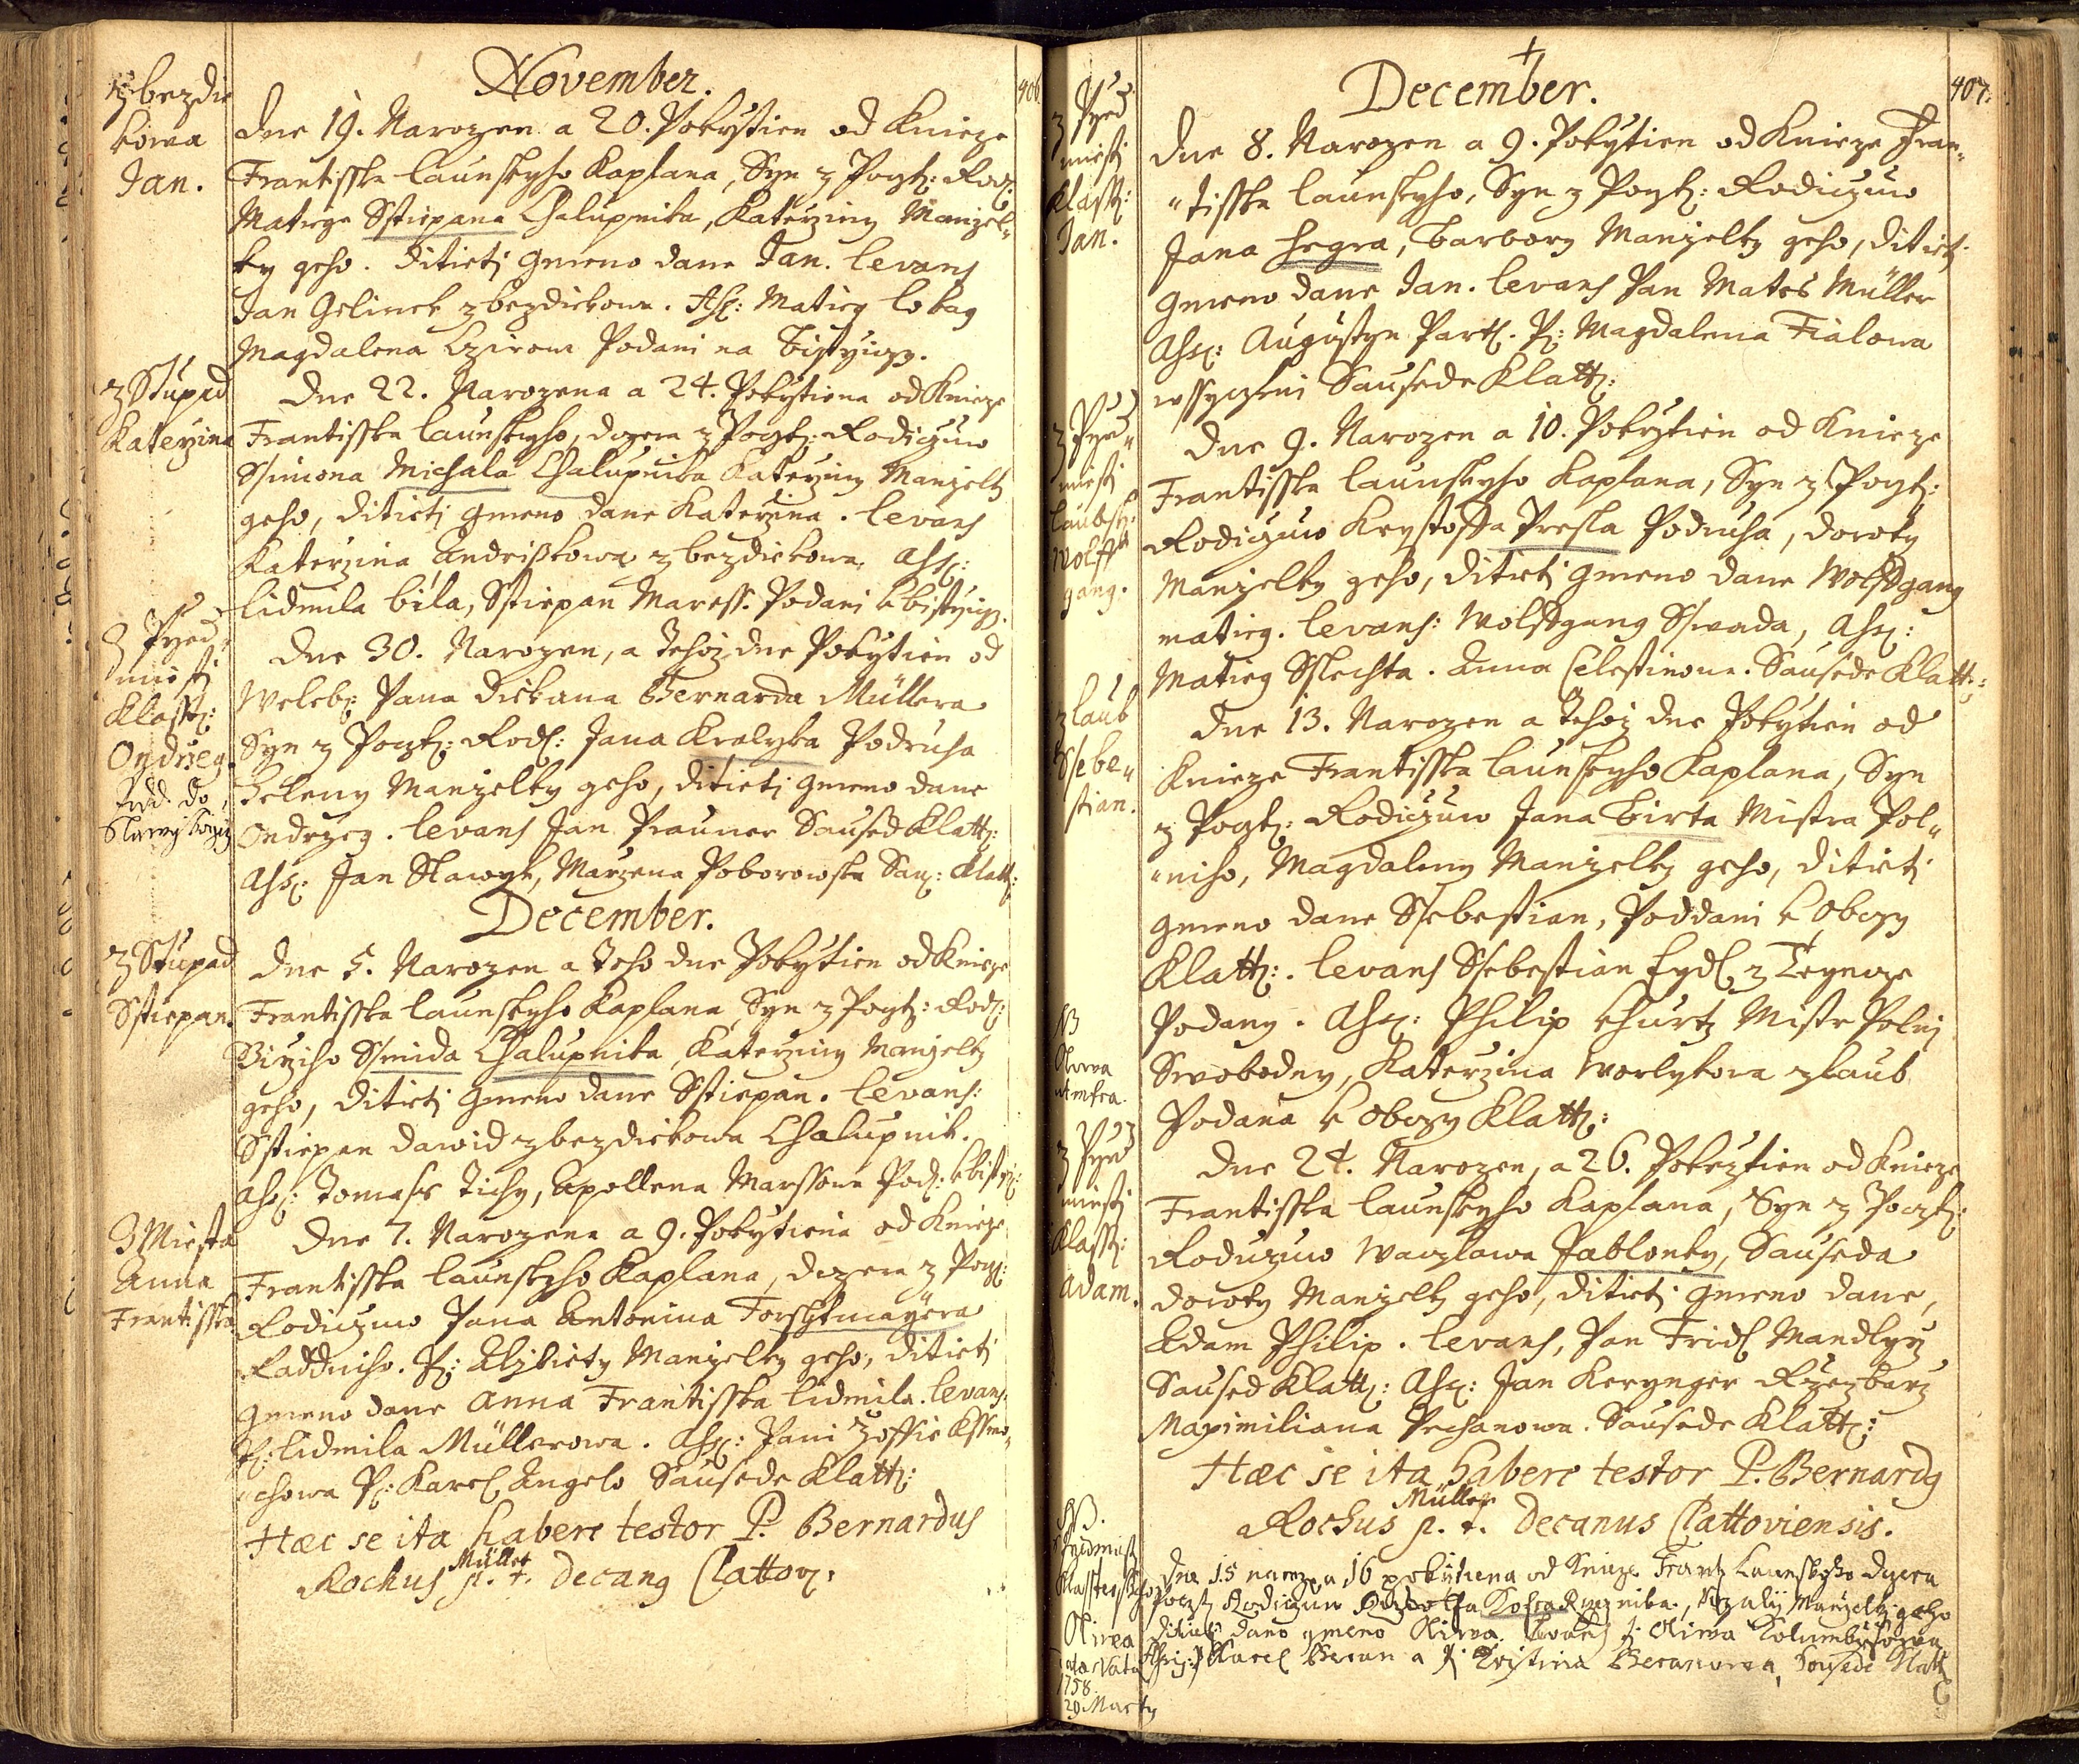 November.
406
z bezdie
kowa
Jan.
Dne 19. Narozen a 20. Pokrztien od Knieze
Frantisska Launskyho Kaplana, Syn z Pocztz: Rodz:
Matiege Sstiepana Chalupnika, Katerziny Manzel„
ky geho. Ditieti gmeno dane Jan. Levans
Jan Gelinek z bezdiekowa. Ass: Matieg
Magdalena Podani na Bistrzicz.
z Stupad
Katerzina
Dne 22. Narozena a 24. Pokrztiena od Knieze
Frantisska Launskyho, dczera z Pocztz: Rodiczuw
Ssimona Michala Chalupnika Katerziny Manzelky
geho, Ditieti gmeno dane Katerzina. Levans
Katerzina Andrißkowa z bezdiekowa. Ass:
Lidmila bila, Sstiepan Maress. Podani k bistrzicz.
z Przed„
miesti
Klasst:
Ondrzeg.
Dne 30. Narozen, a tehoz dne Pokrztien od
Weleb: Pana Diekana Bernarda Müllera
Syn z Pocztz: Rod: Jana Kralyka Podruha
Heleny Manzelky geho, ditieti gmeno dane
Ondrzeg. Levans Jan Prauner Saused Klatt:
Ass: Jan Slawyk, Marzena Poborowska Sau: Klatt:
December.
z Stupad
Sstiepan.
Dne 5. Narozen a toho dne Pokrztien od Knieze
Frantisska Launskyho Kaplana, Syn z Pocztz: Rodz:
Girziho Ssmida Chalupnika, Katerziny Manzelky
geho, ditieti gmeno dane Sstiepan. Levans:
Sstiepan Dawid z bezdiekowa Chalupnik.
Ass: Tomass Tichy, Apollena Marssowa Pod: k bistrz:
Z Miesta
Anna
Frantisska
Dne 7. Narozena a 9. Pokrztiena od Knieze
Frantisska Launskyho Kaplana, dczera z Pocz:
Rodiczuw Pana Antonina Forschtmayera
Raddniho. P: Alzbiety Manzelky geho, ditieti
gmeno dane Anna Frantisska Lidmila. Levans:
P: Lidmila Müllerowa. Ass: Pani Zoffie
„chowa P: Karel Angelo Sausede Klatt:
Hæc se ita habere testor P. Bernardus
Rochus Müller p. t. Decang Clattov:
December.
407.
z Przed
miesti
Klasst:
Jan.
Dne 8. Narozen a 9. Pokrztien od Knieze Fran„
„tisska Launskyho, Syn z Pocztz: Rodiczuw
Jana Hegra, Barbory Manzelky geho, ditieti
gmeno dane Jan. Levans Pan Mates Müller
Ass: Augustyn Partl. P: Magdalena Fialowa
wssyczkni Sausede Klatt:
z Przed„
miesti
Laubsk:
Wolff„
gang.
Dne 9. Narozen a 10. Pokrztien od Knieze
Frantisska Launskyho Kaplana, Syn z Pocztz:
Rodiczuw Krystoffa Presla Podruha, doroty
Manzelky geho, ditieti gmeno dane Wolffgang
matieg. Levans: Wolffgang Sswada, Ass:
Matieg Sslechta. Anna Celestinowa. Sausede Klatt:
z Laub
Ssebe„
stian.
Dne 13. Narozen a tehoz dne Pokrztien od
Knieze Frantisska Launskyho Kaplana, Syn
z Pocztz: Rodiczuw Jana Birta Mistra Pol„
„niho, Magdaleny Manzelky geho, ditieti
gmeno dane Ssebestian, Poddani k Obczy
Klatt:. Levans Ssebestian Eydl z Teyncze
Podany. Ass: Philip Khurtz Mistr Polni
Swobodny, Katerzina Worlykowa z Laub
Podana k Obczy Klatt:
NB
infra.
z Przed
miesti
Klasst:
Adam.
Dne 24. Narozen, a 26. Pokrztien od Knieze
Frantisska Launskyho Kaplana, Syn z Pocztz:
Rodiczuw Waczlawa Jablonky, Sauseda
doroty Manzelky geho, ditieti gmeno dane,
Adam Philip. Levans, Pan Fridl Mandlyrz
Saused Klatt: Ass: Jan Kerynger Rzezbarz
Maximiliana Pechanowa. Sausede Klatt:
Hæc se ita habere testor P. Bernardg
Rochus Müller p. t. Decanus Clattoviensis.
NB.
Dne 15 naroze a 16 pokrztiena od Knieze Frantz Launskyho dczera
Poczt Rodiczuw Kofra manzelky geho
ditieti dano gmeno Levans
Ass: P Karel Beran a P: Kristina Beranowa, Sausede Klatt
1758
29 Marty